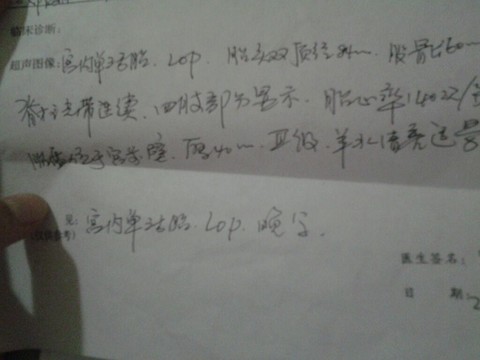 临床诊断:
超声图像:宫内单活胎. LOP. 胎头双顶径84mm. 股骨长60mm
脊柱光带连续. 四肢部分显示. 胎心率140次/
宫 厚40mm. Ⅱ级. 羊水清亮
见: 宫内单活胎. LOP. 晚孕.
(仅供参考)
医生签名:
日 期:2